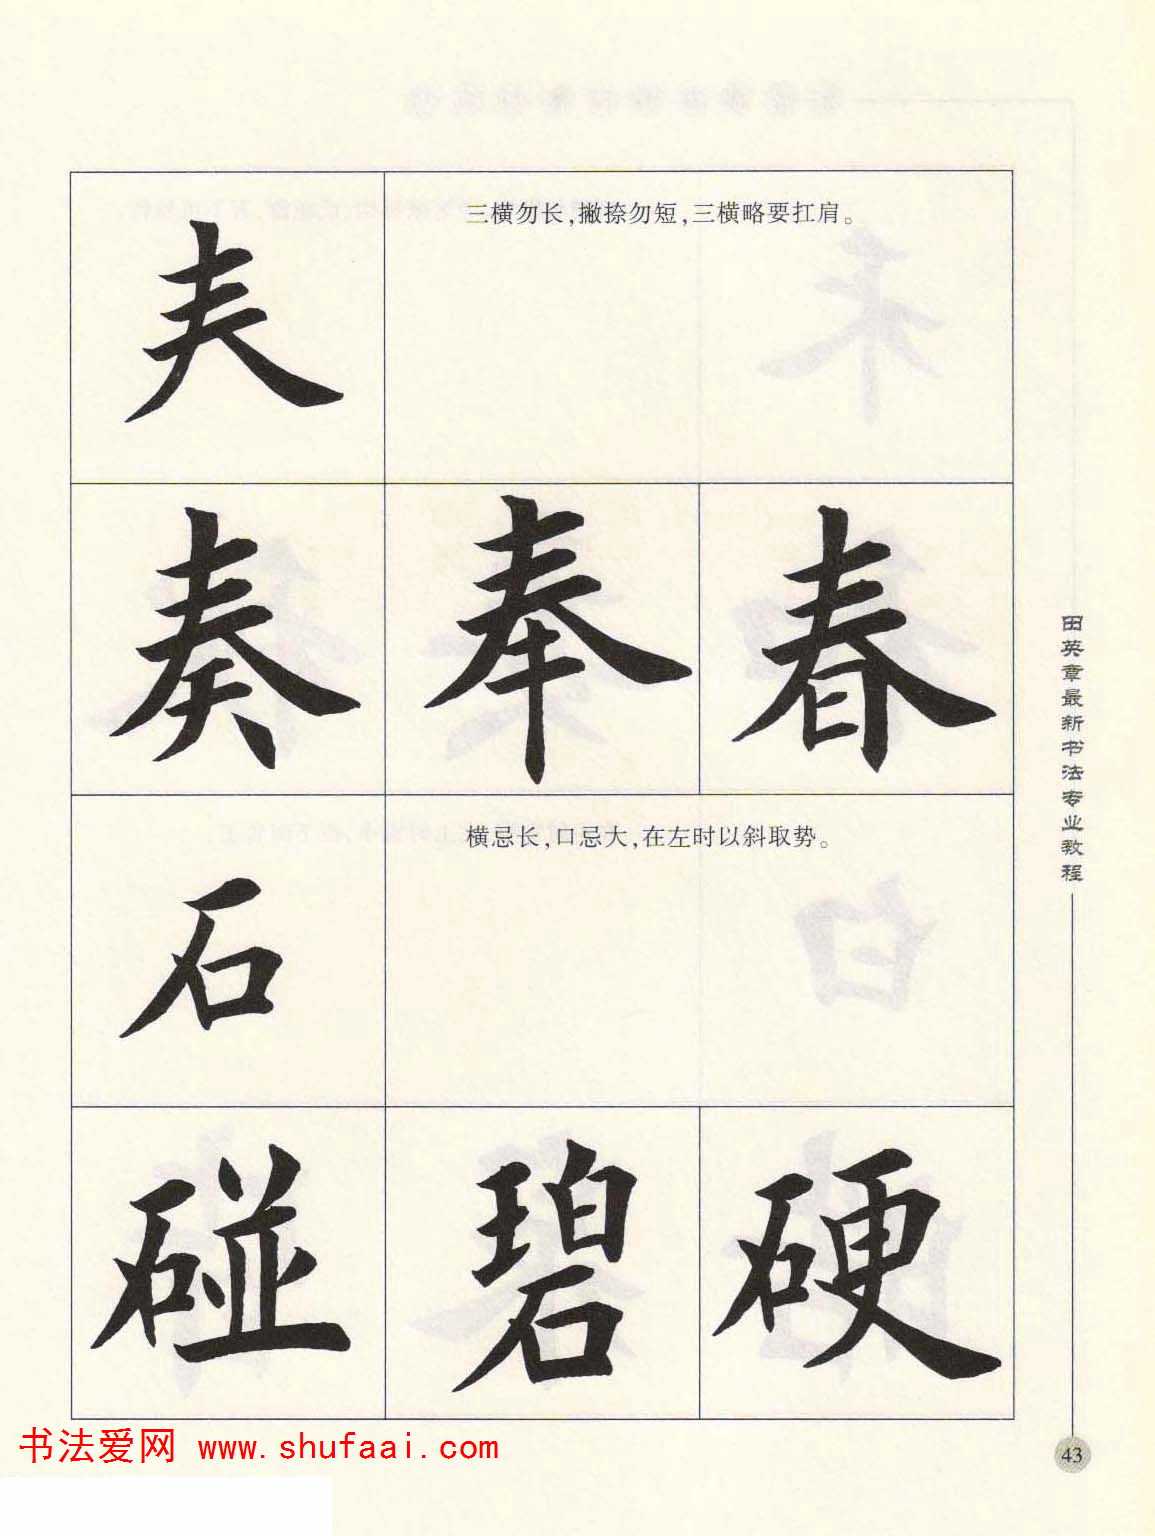 三横勿长，撇捺勿短，三横略要扛肩。
𡗗
奏 奉 春
横忌长，口忌大，在左时以斜取势。
石
碰 碧 硬
田英章最新书法专业教程
43
书法爱网 www.shufaai.com